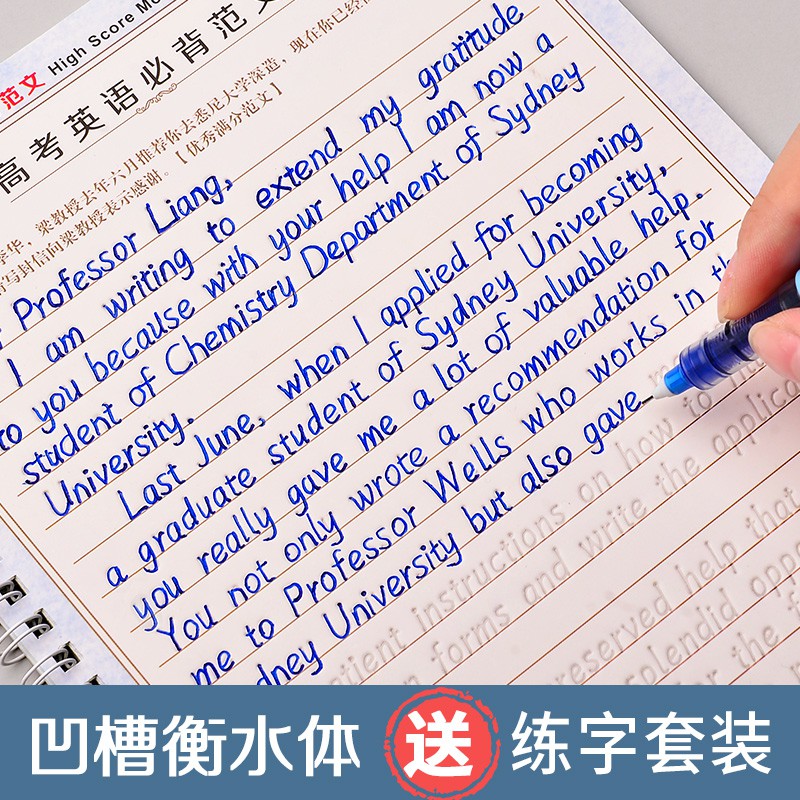 范文 High Score Mo
高考英语必背范文
李华，梁教授去年六月推荐你去悉尼大学深造，现在你已经
写封信向梁教授表示感谢。【优秀满分范文】
Professor Liang,
I am writing to extend my gratitude
to you because with your help I am now a
student of Chemistry Department of Sydney
University.
Last June, when I applied for becoming
a graduate student of Sydney University,
you really gave me a lot of valuable help.
You not only wrote a recommendation for
me to Professor Wells who works in th
dney University but also gave
atient instructions on how to
n forms and write the applica
preserved help that
splendid oppo
for the
凹槽衡水体 送 练字套装